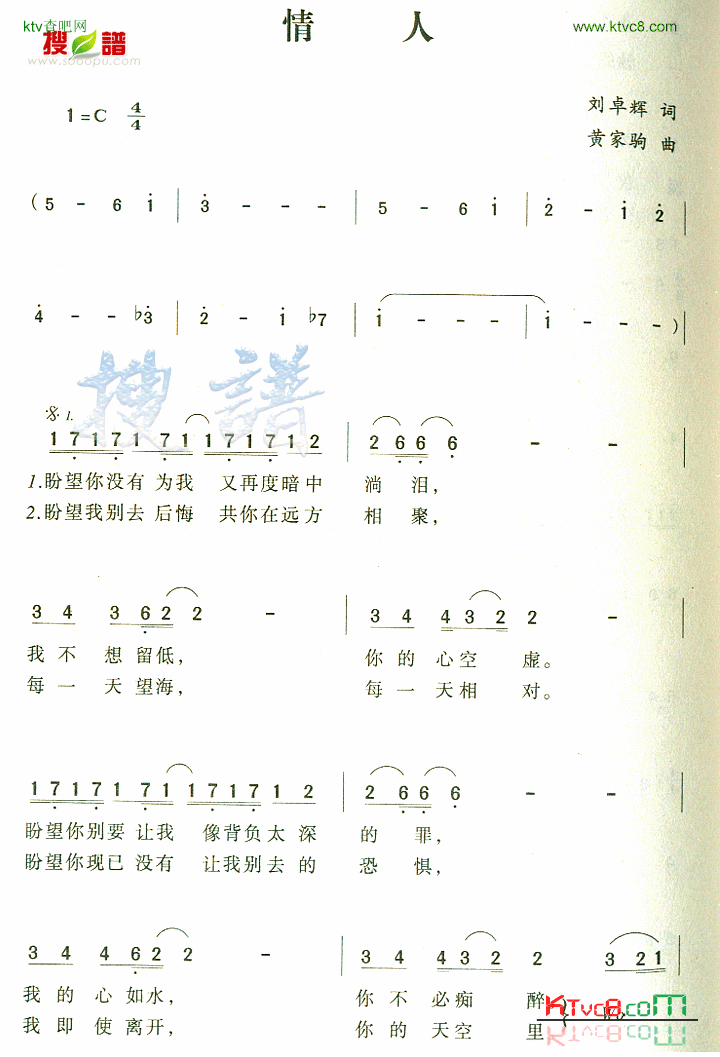 ktv查吧网
搜 譜
www.sooopu.com
情 人
www.ktvc8.com
1=C 4/4
刘卓辉 词
黄家驹 曲
( 5 - 6 i | 3 - - - | 5 - 6 i | 2 - i 2 |
4 - - ♭3 | 2 - i ♭7 | i - - - | i - - - )
搜譜
1.
1 7 1 7 1 7 1 1 7 1 7 1 2 | 2 6 6 6 - -
1.盼望你没有 为我 又再度暗中 淌 泪,
2.盼望我别去 后悔 共你在远方 相 聚,
3 4 3 6 2 2 - | 3 4 4 3 2 2 -
我 不 想 留低, 你 的 心 空 虚。
每 一 天 望海, 每 一 天 相 对。
1 7 1 7 1 7 1 1 7 1 7 1 2 | 2 6 6 6 - -
盼望你别要 让我 像背负太深 的 罪,
盼望你现已 没有 让我别去的 恐 惧,
3 4 4 6 2 2 - | 3 4 4 3 2 2 3 2 1
我 的 心 如水, 你 不 必 痴 醉
我 即 使 离开, 你 的 天 空 里
KTvc8.com